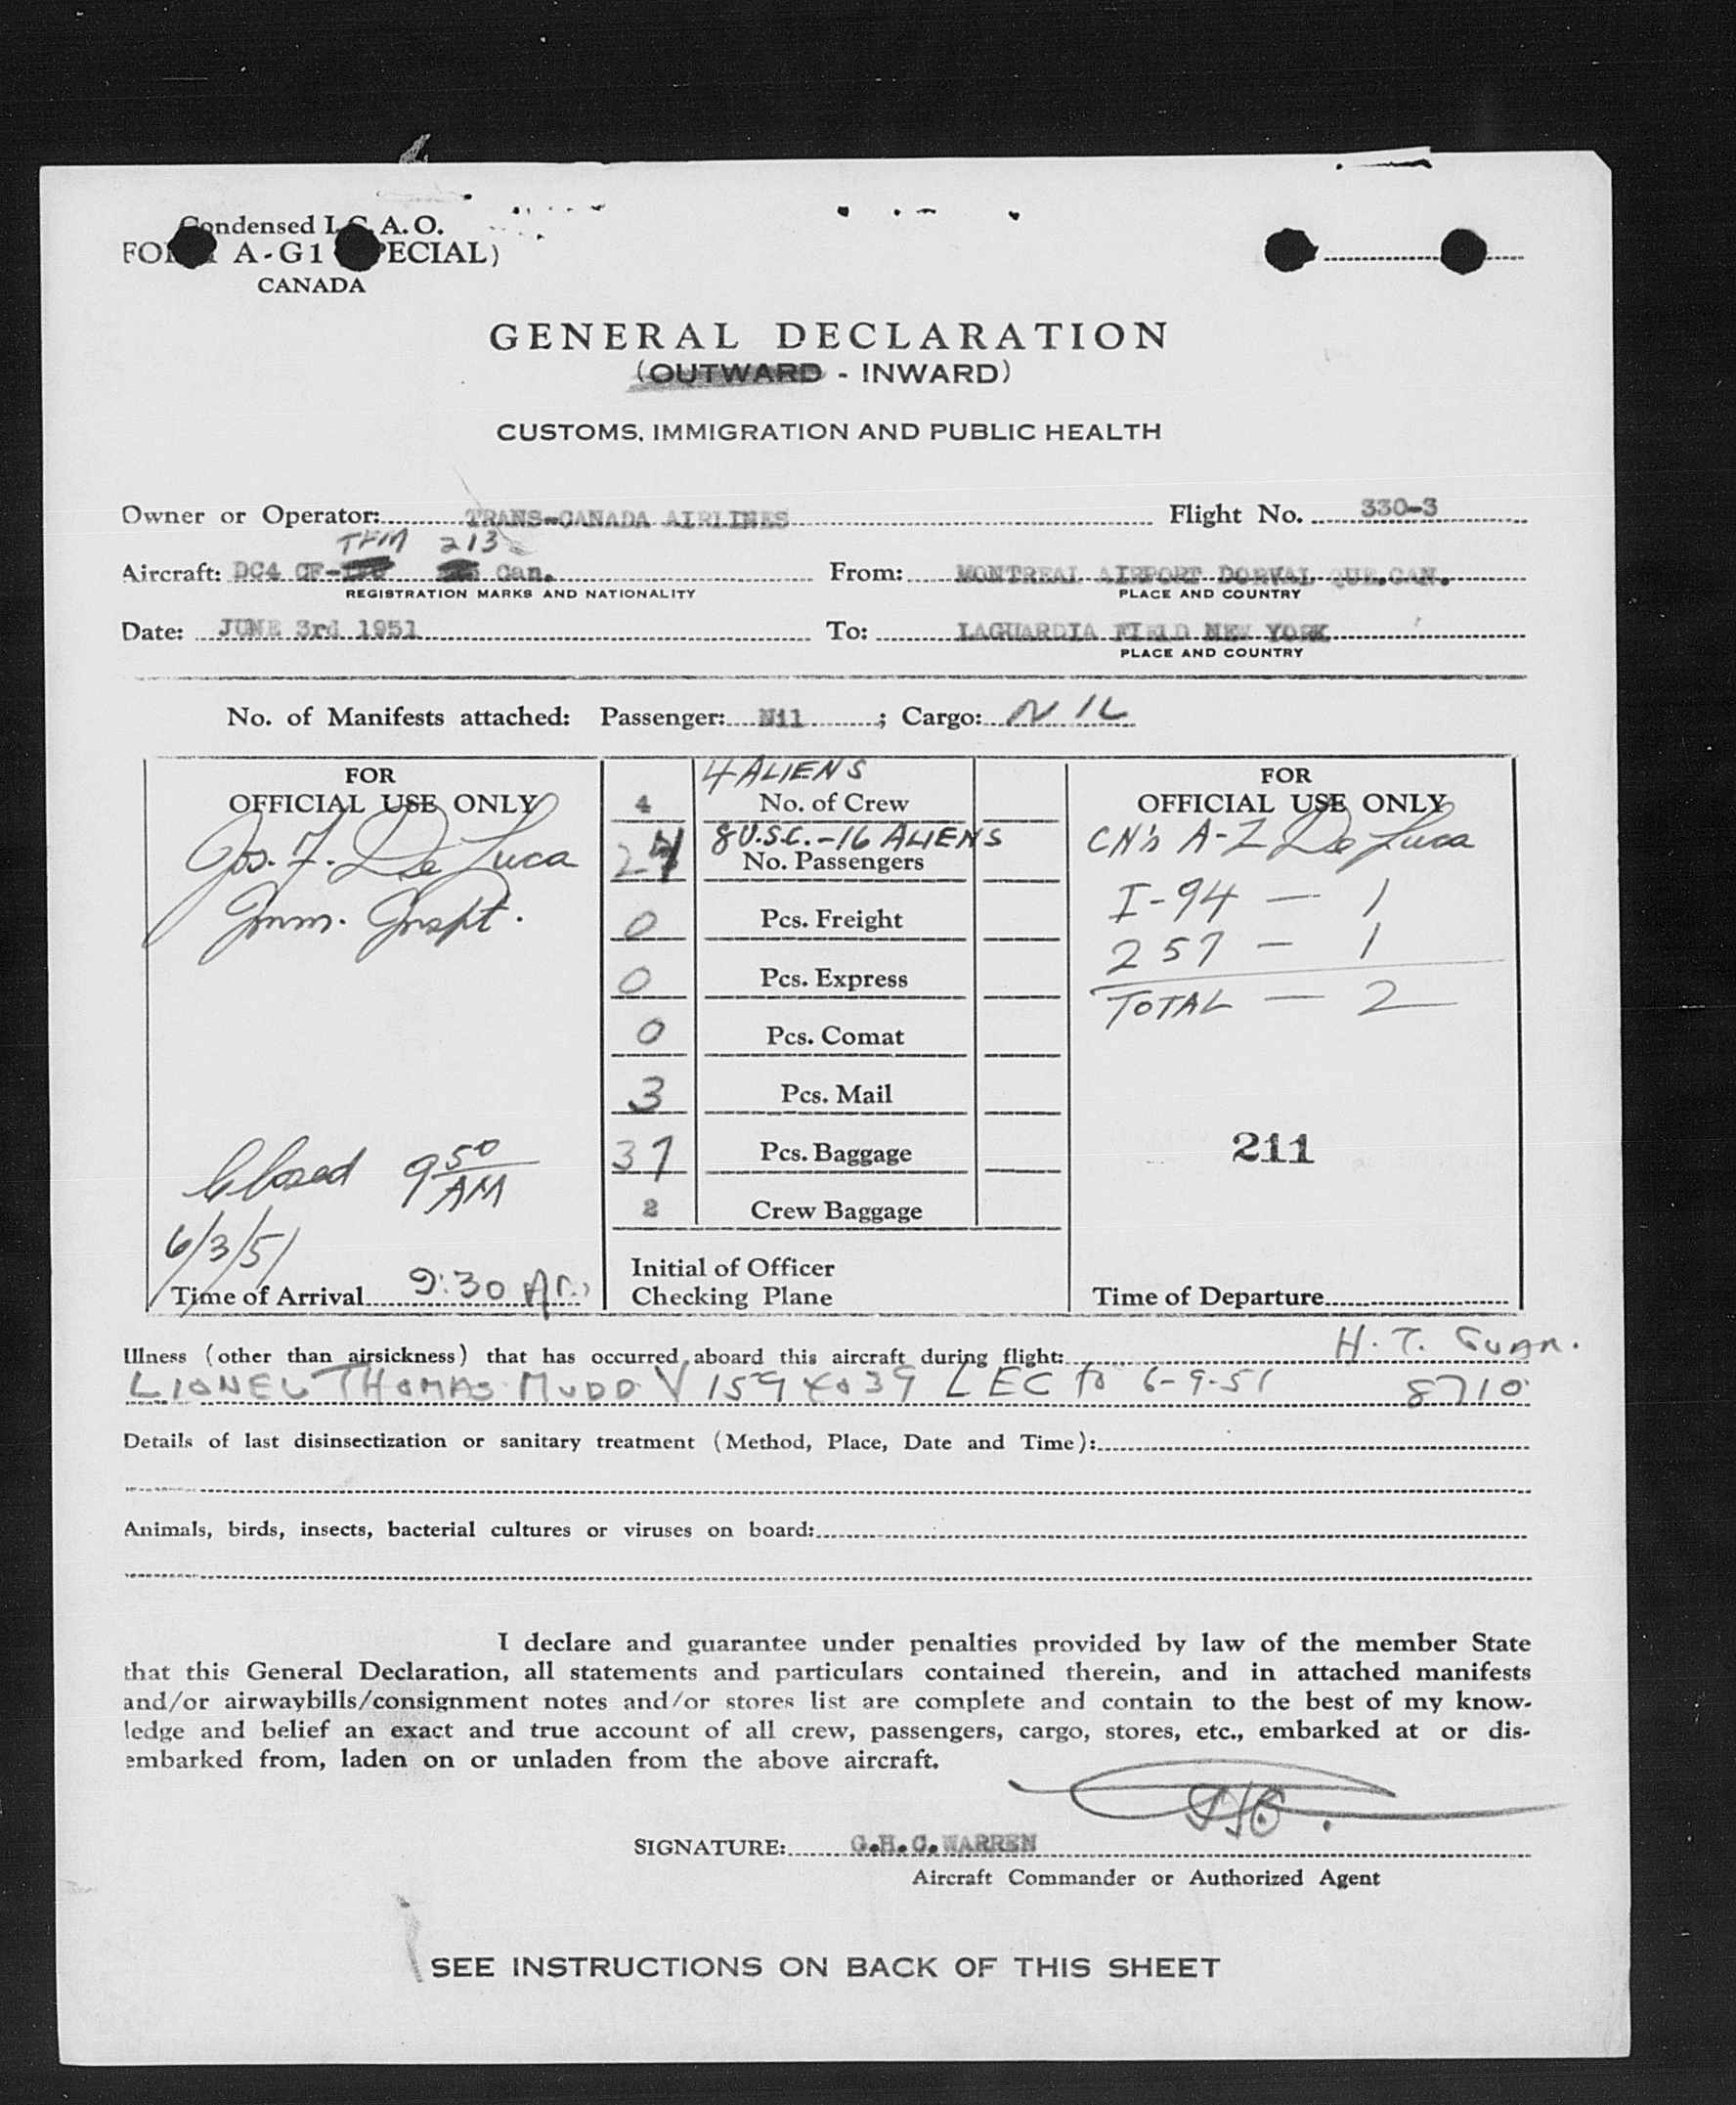 Condensed I.C.A.O.
FORM A-G1 (SPECIAL)
CANADA
GENERAL DECLARATION
(OUTWARD - INWARD)
CUSTOMS, IMMIGRATION AND PUBLIC HEALTH
Owner or Operator: TRANS-CANADA AIRLINES Flight No. 330-3
TFM 213
Aircraft: DC4 CF- Can. From: MONTREAL AIRPORT DORVAL QUE.CAN.
REGISTRATION MARKS AND NATIONALITY PLACE AND COUNTRY
Date: JUNE 3rd 1951 To: LAGUARDIA FIELD NEW YORK
PLACE AND COUNTRY
No. of Manifests attached: Passenger: Nil ; Cargo: NIL
FOR OFFICIAL USE ONLY
Jos. F. De Luca
Imm. Inspt.
Closed 9 50 AM
6/3/51
Time of Arrival 9:30 A
4 ALIENS
4 No. of Crew
8 U.S.C. - 16 ALIENS
24 No. Passengers
0 Pcs. Freight
0 Pcs. Express
0 Pcs. Comat
3 Pcs. Mail
37 Pcs. Baggage
2 Crew Baggage
Initial of Officer
Checking Plane
FOR OFFICIAL USE ONLY
CN's A-Z De Luca
I-94 — 1
257 — 1
TOTAL — 2
211
Time of Departure
Illness (other than airsickness) that has occurred aboard this aircraft during flight: H. T.
LIONEL THOMAS MUDD V 159 39 LEC to 6-9-51 8710
Details of last disinsectization or sanitary treatment (Method, Place, Date and Time):
Animals, birds, insects, bacterial cultures or viruses on board:
I declare and guarantee under penalties provided by law of the member State
that this General Declaration, all statements and particulars contained therein, and in attached manifests
and/or airwaybills/consignment notes and/or stores list are complete and contain to the best of my know-
ledge and belief an exact and true account of all crew, passengers, cargo, stores, etc., embarked at or dis-
embarked from, laden on or unladen from the above aircraft.
SIGNATURE: G.H.C. WARREN
Aircraft Commander or Authorized Agent
SEE INSTRUCTIONS ON BACK OF THIS SHEET